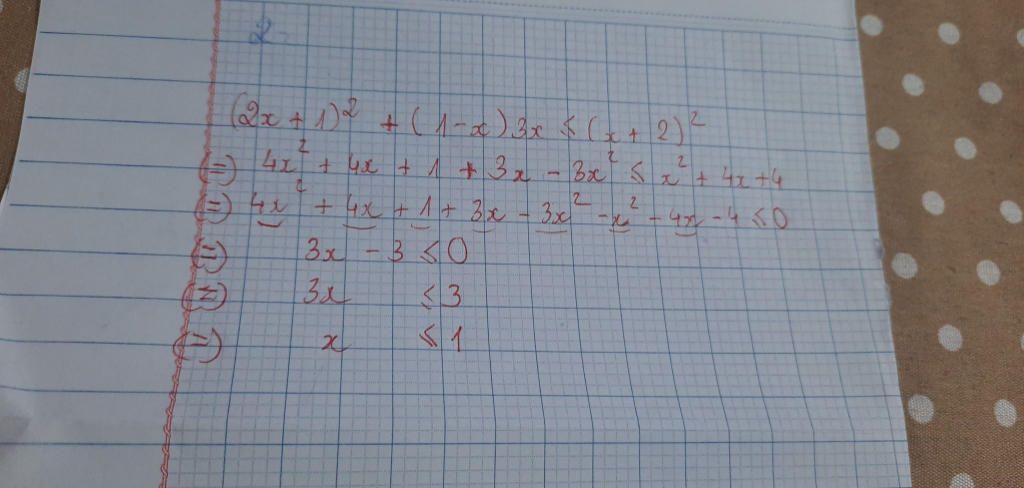 2
(2x + 1)² + (1 - x) 3x ≤ (x + 2)²
(=) 4x² + 4x + 1 + 3x - 3x² ≤ x² + 4x + 4
(=) 4x² + 4x + 1 + 3x - 3x² - x² - 4x - 4 ≤ 0
(=) 3x - 3 ≤ 0
(=) 3x ≤ 3
(=) x ≤ 1